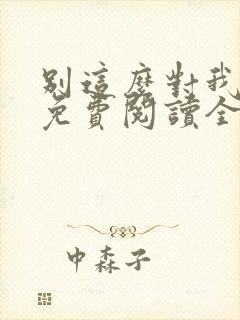 別這麼對我
免費閱讀全
中森子